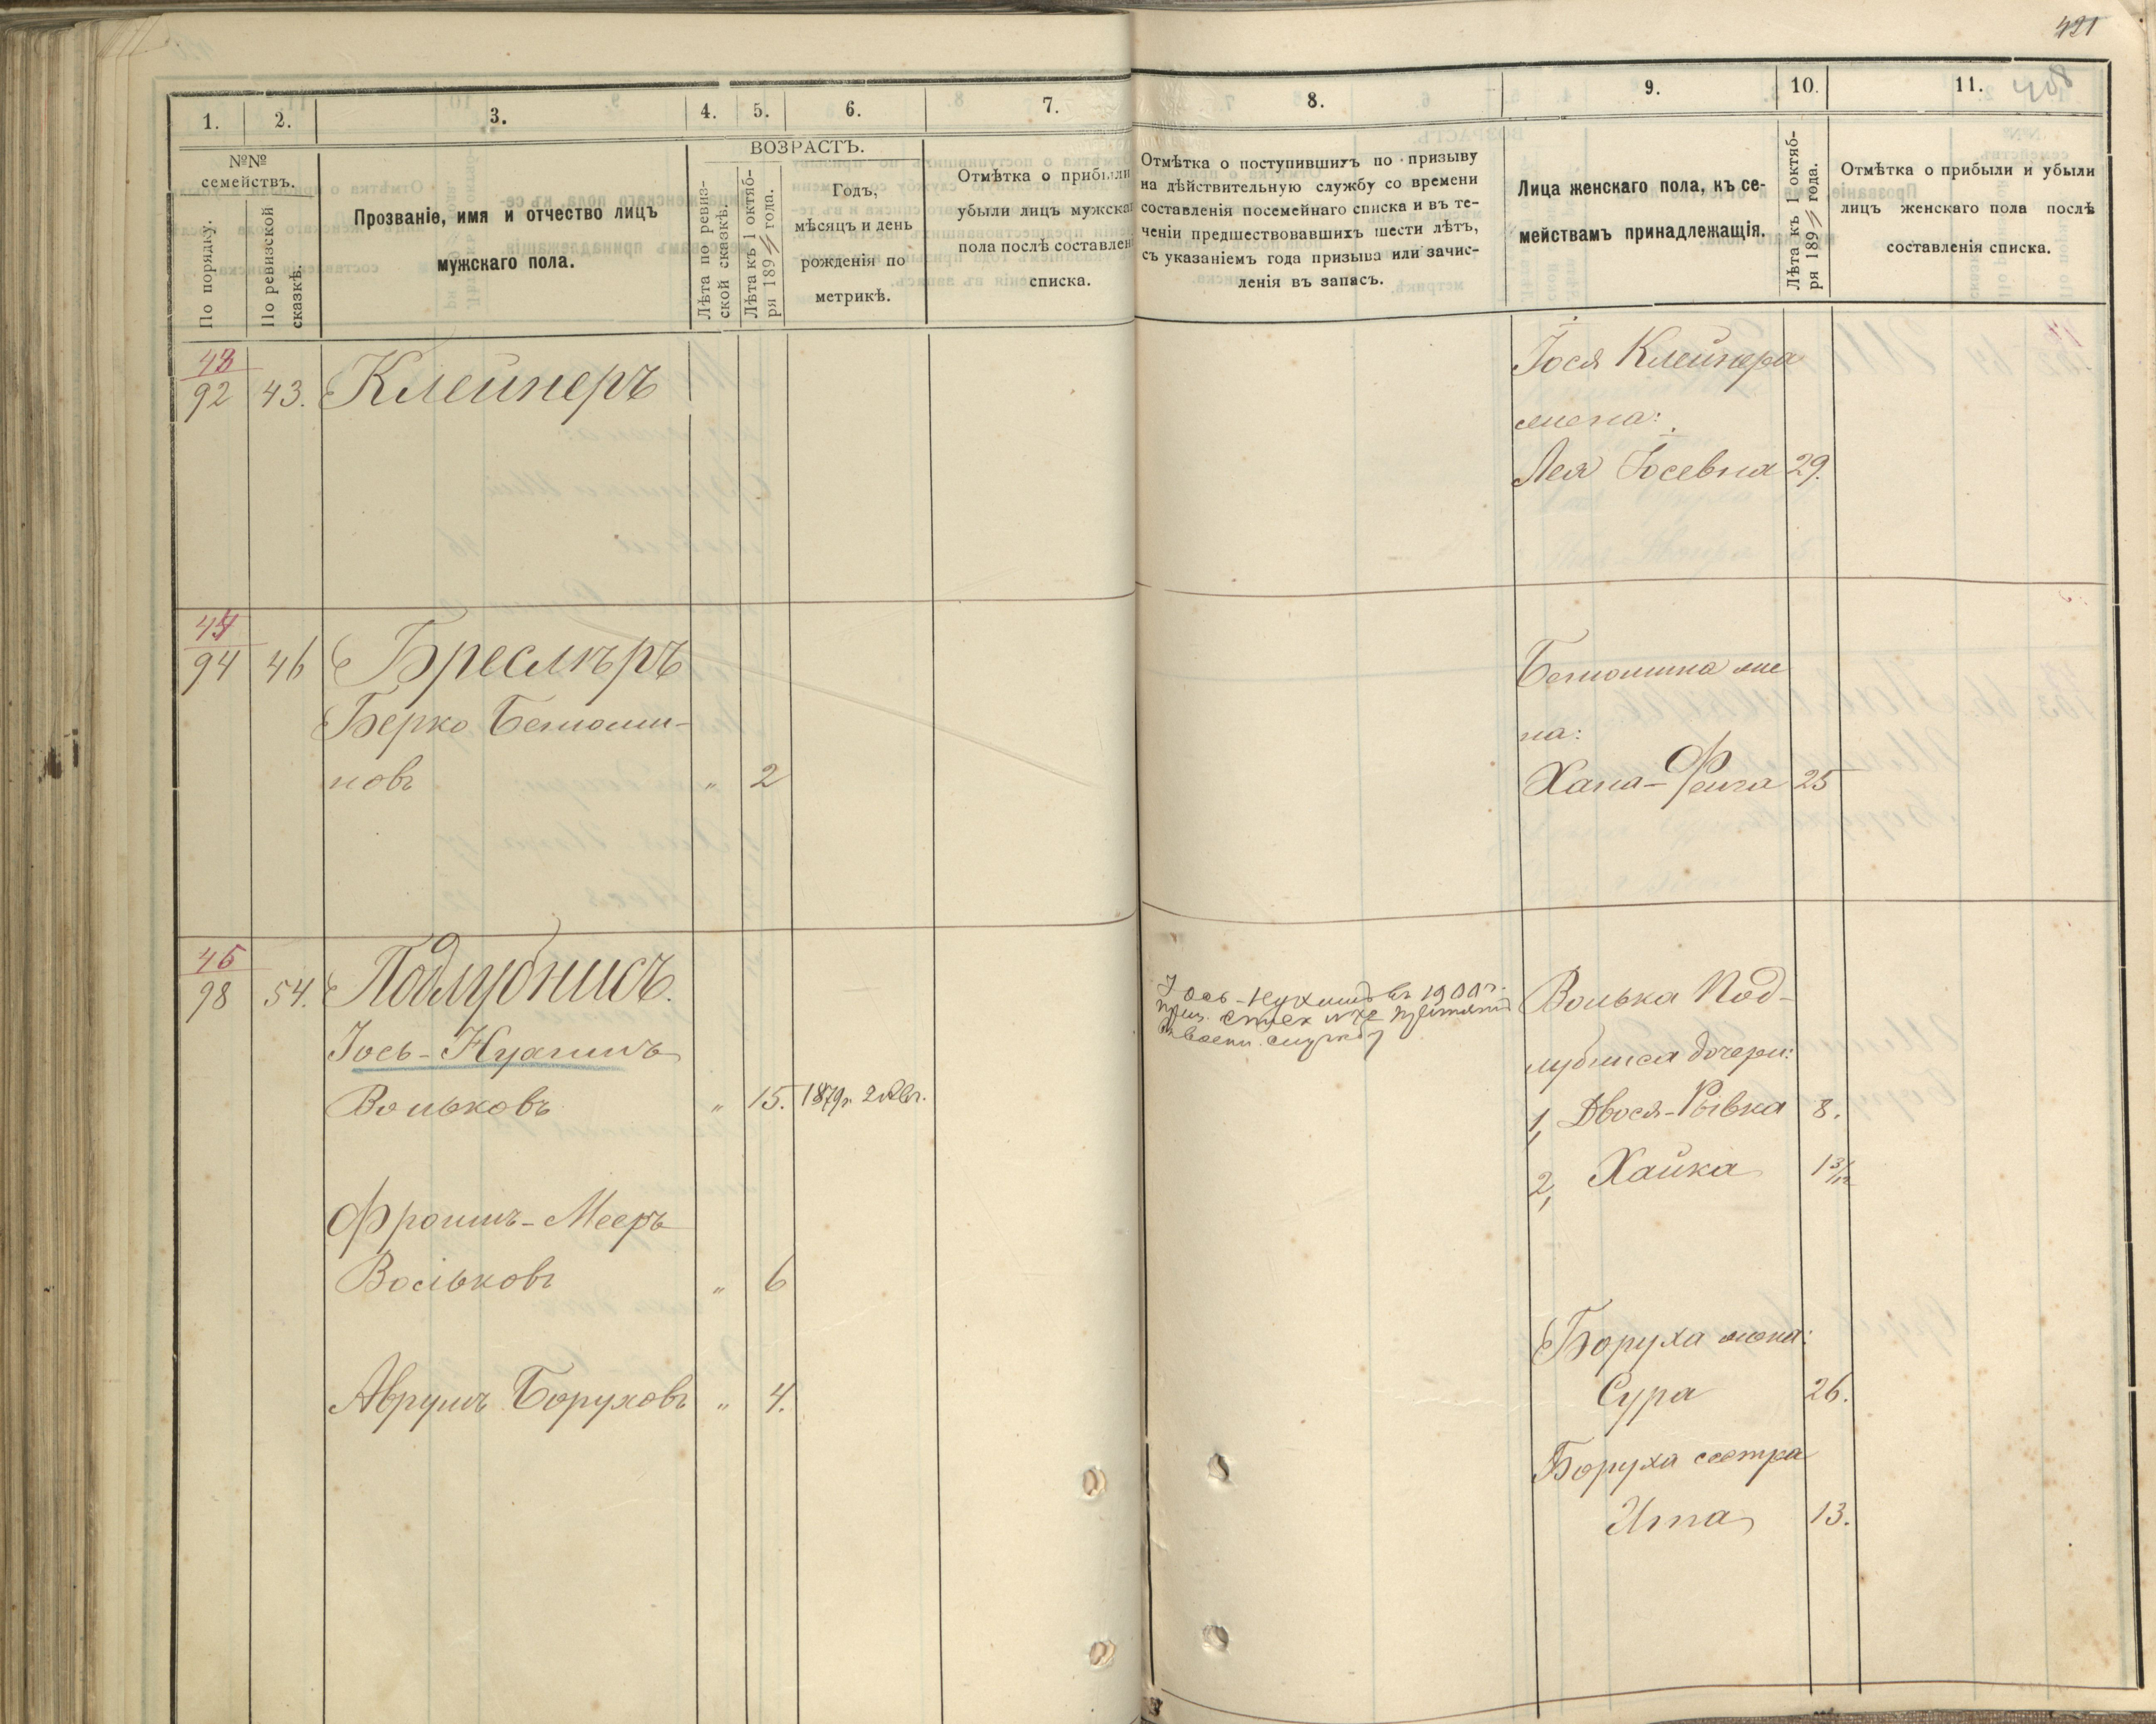 421
408
1. 2. 3. 4. 5. 6. 7.
№№ семействъ.
По порядку.
По ревизской сказкѣ.
Прозваніе, имя и отчество лицъ
мужскаго пола.
ВОЗРАСТЪ.
Лѣта по ревиз-
ской сказкѣ.
Лѣта къ 1 октяб-
ря 189 года.
Годъ,
мѣсяцъ и день
рожденія по
метрикѣ.
Отмѣтка о прибыли
убыли лицъ мужска
пола послѣ составлен
списка.
43
92 43. Клейнеръ
44
94 46 Бреслѣръ
Берко Беньоми-
новъ " 2
45
98 54. Подлубнисъ.
Іось-Нухимъ
Вольковъ " 15. 1879г. 2 Авг.
Фроимъ-Мееръ
Вольковъ " 6
Аврумъ Боруховъ " 4.
8. 9. 10. 11.
Отмѣтка о поступившихъ по призыву
на дѣйствительную службу со времени
составленія посемейнаго списка и въ те-
ченіи предшествовавшихъ шести лѣтъ,
съ указаніемъ года призыва или зачис-
ленія въ запасъ.
Лица женскаго пола, къ се-
мействамъ принадлежащія.
Лѣта къ 1 октяб-
ря 189 года.
Отмѣтка о прибыли и убыли
лицъ женскаго пола послѣ
составленія списка.
Іося Клейнера
жена:
Лея Іосевна 29.
Беньомина же
на:
Хана-Фейга 25
Іось-Нухимъ въ 1900 г.
воен. службу
Волька Под-
лубниса дочери:
1, Двося-Рывка 8.
2, Хайка 1 3/12
Боруха жена:
Сура 26.
Боруха сестра
Итта 13.